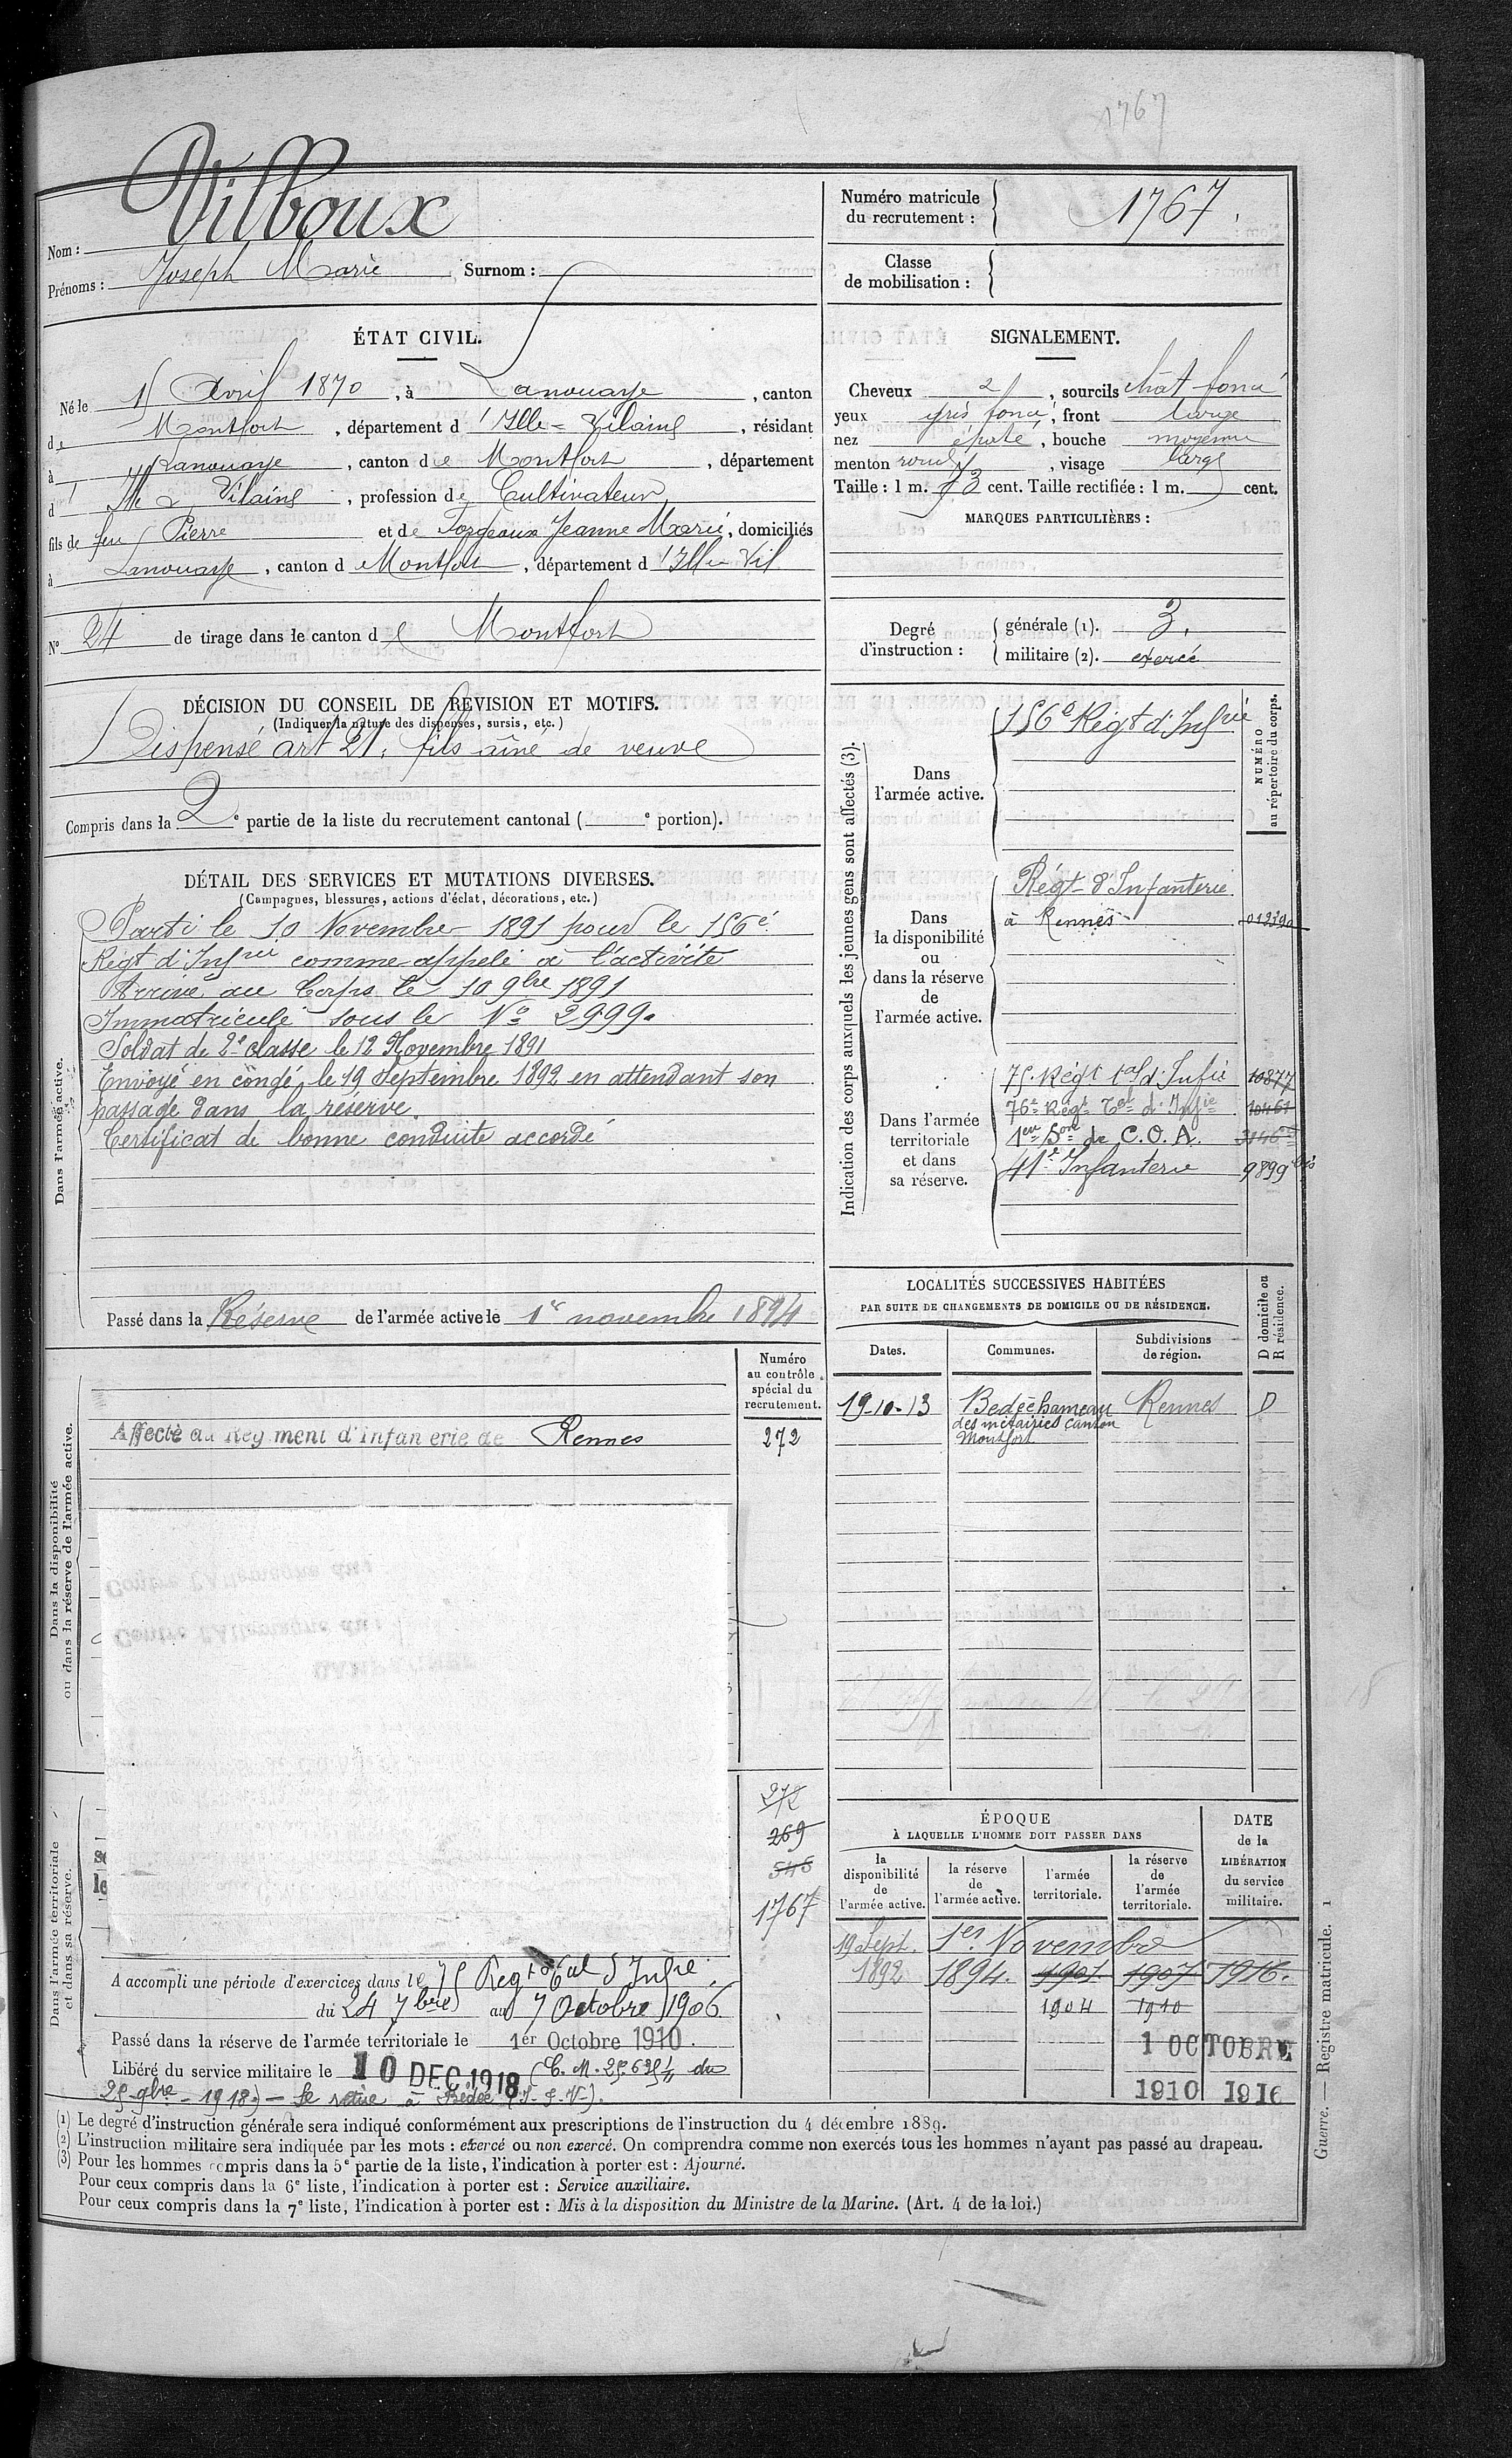 1767
Nom : Vilboux
Prénoms : Joseph Marie Surnom :
Numéro matricule du recrutement : 1767.
Classe de mobilisation :
ÉTAT CIVIL.
Né le 15 Avril 1870, à Lanouaye, canton
de Montfort, département d'Ille-Vilaine, résidant
à Lanouaye, canton de Montfort, département
d' Ille Vilaine, profession de Cultivateur
fils de feu Pierre et de Jeanne Marie, domiciliés
à Lanouaye, canton d Montfort, département d'Ille Vil
No 24 de tirage dans le canton de Montfort
DÉCISION DU CONSEIL DE REVISION ET MOTIFS.
(Indiquer la nature des dispenses, sursis, etc.)
Dispensé art 21. fils aîné de veuve
Compris dans la 2e partie de la liste du recrutement cantonal ( e portion).
DÉTAIL DES SERVICES ET MUTATIONS DIVERSES.
(Campagnes, blessures, actions d'éclat, décorations, etc.)
Dans l'armée active.
Parti le 10 Novembre 1891 pour le 156e
Régt d'Infrie comme appelé à l'activité
Arrivé au Corps le 10 9bre 1891
Immatriculé sous le No 2999.
Soldat de 2e classe le 12 Novembre 1891
Envoyé en congé, le 19 Septembre 1892 en attendant son
passage dans la réserve.
Certificat de bonne conduite accordé
Passé dans la Réserve de l'armée active le 1er novembre 1894
Dans la disponibilité
ou dans la réserve de l'armée active.
Numéro
au contrôle
spécial du
recrutement.
Affecté au Régiment d'Infanterie de Rennes 272
Contre l'Allemagne du
Contre l'Allemagne du
Dans l'armée territoriale
et dans sa réserve.
272
269
545
1767
A accompli une période d'exercices dans le 75 Regt Tal d'Infie.
du 24 7bre au 7 Octobre 1906
Passé dans la réserve de l'armée territoriale le 1er Octobre 1910.
Libéré du service militaire le 10 DEC 1918 (C. M. du
25-9bre-1918) - Se retire à Bédée (I-&-V).
SIGNALEMENT.
Cheveux , sourcils chât foncé
yeux gris foncé, front large
nez épaté, bouche moyenne
menton rond, visage large
Taille : 1 m. 73 cent. Taille rectifiée : 1 m. cent.
MARQUES PARTICULIÈRES :
Degré d'instruction :
générale (1). 3.
militaire (2). exercé
Indication des corps auxquels les jeunes gens sont affectés (3).
NUMÉRO
au répertoire du corps.
Dans
l'armée active.
156e Régt d'Infrie
Dans
la disponibilité
ou
dans la réserve
de
l'armée active.
Régt d'Infanterie
à Rennes
Dans l'armée
territoriale
et dans
sa réserve.
75. Régt tal d'Infie 10877
76e Régt Tal d'Infie 10461
1ere Son de C.O.A.
41e Infanterie 9899 bis
LOCALITÉS SUCCESSIVES HABITÉES
PAR SUITE DE CHANGEMENTS DE DOMICILE OU DE RÉSIDENCE.
Dates. Communes. Subdivisions de région. D domicile ou R résidence.
19-10-13 Bedée hameau Rennes D
des métairies canton
Montfort
ÉPOQUE
À LAQUELLE L'HOMME DOIT PASSER DANS
la disponibilité de l'armée active.
la réserve de l'armée active.
l'armée territoriale.
la réserve de l'armée territoriale.
DATE de la LIBÉRATION du service militaire.
19 Sept. 1er Novembre
1892 1894. 1901 1907 1916.
1904 1910
1 OCTOBRE
1910 1916
(1) Le degré d'instruction générale sera indiqué conformément aux prescriptions de l'instruction du 4 décembre 1889.
(2) L'instruction militaire sera indiquée par les mots : exercé ou non exercé. On comprendra comme non exercés tous les hommes n'ayant pas passé au drapeau.
(3) Pour les hommes compris dans la 5e partie de la liste, l'indication à porter est : Ajourné.
Pour ceux compris dans la 6e liste, l'indication à porter est : Service auxiliaire.
Pour ceux compris dans la 7e liste, l'indication à porter est : Mis à la disposition du Ministre de la Marine. (Art. 4 de la loi.)
Guerre. — Registre matricule. 1